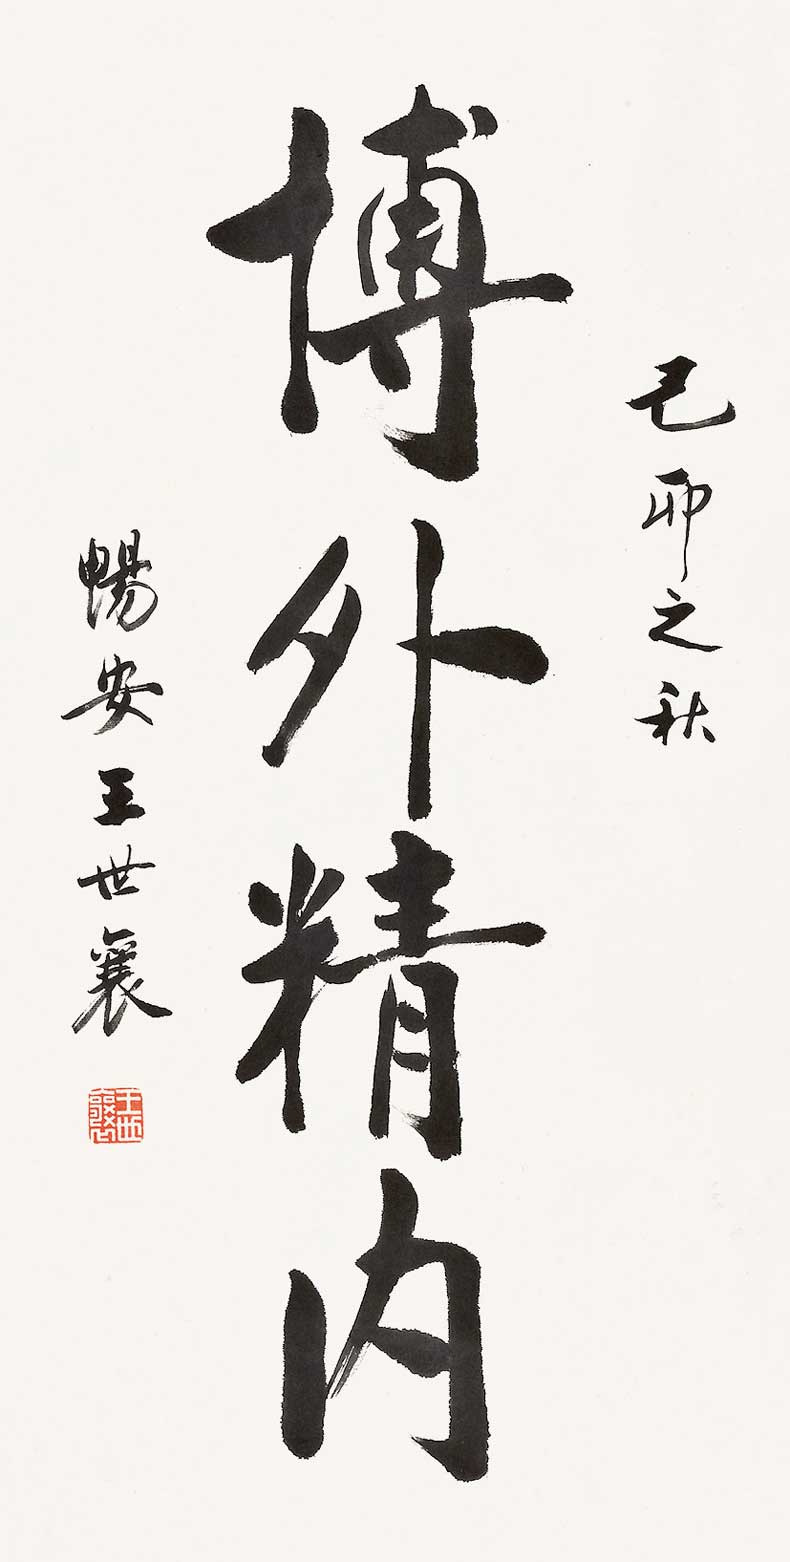 己卯之秋
博外精内
暢安王世襄
王世襄